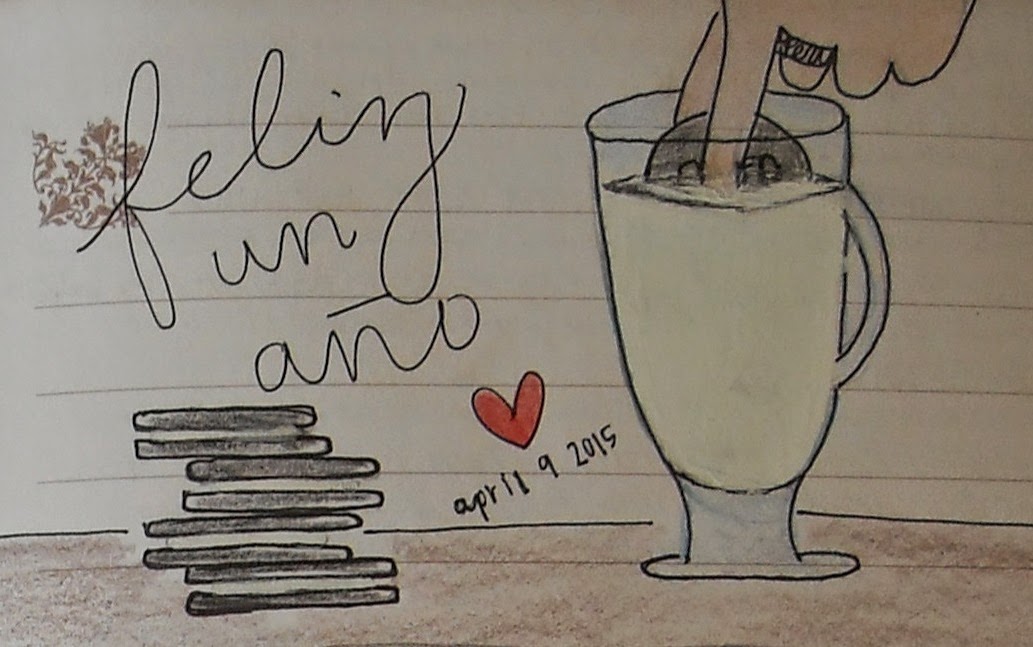 feliz
un
año
april 9 2015